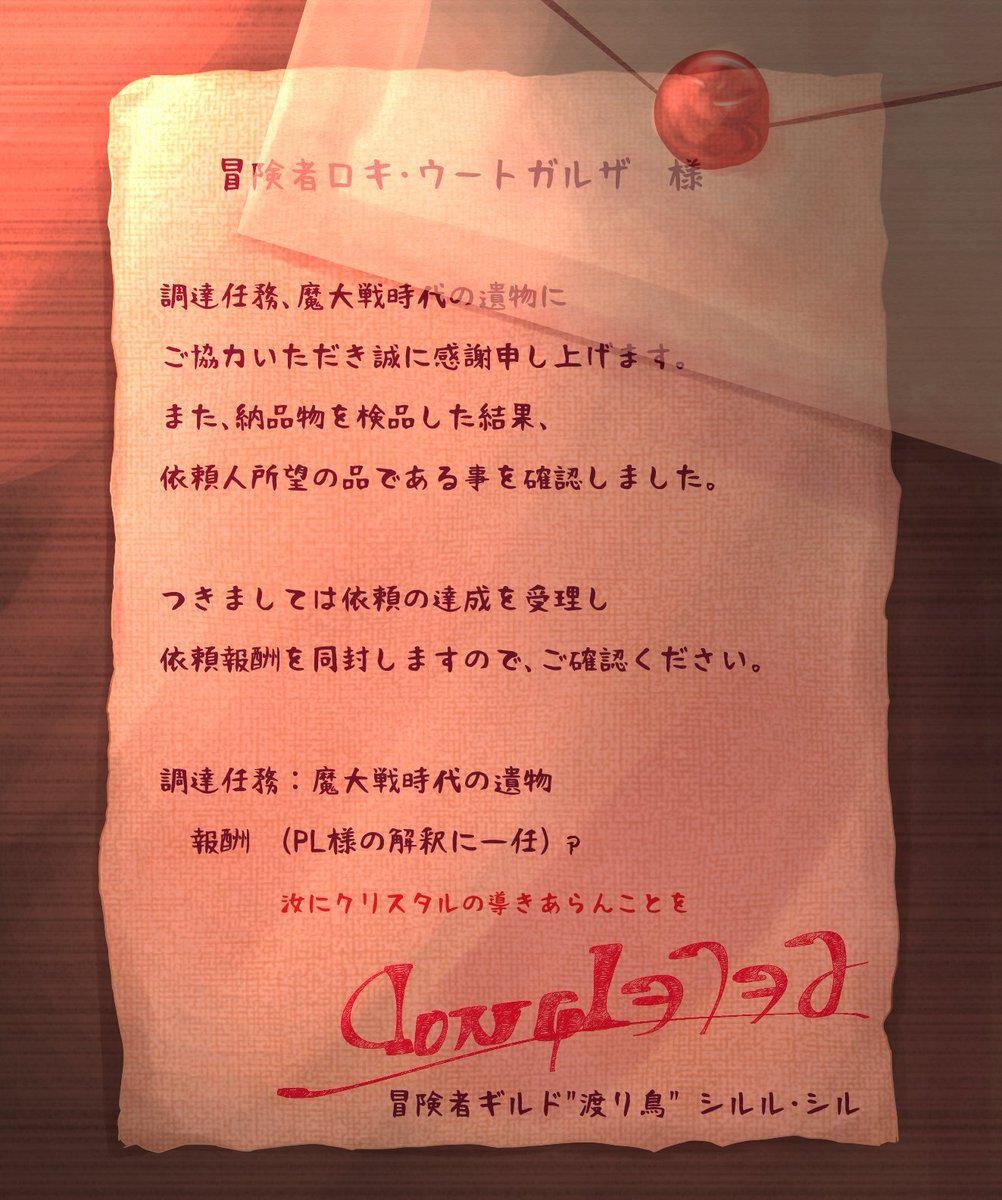 冒険者ロキ・ウートガルザ　様
調達任務、魔大戦時代の遺物に
ご協力いただき誠に感謝申し上げます。
また、納品物を検品した結果、
依頼人所望の品である事を確認しました。
つきましては依頼の達成を受理し
依頼報酬を同封しますので、ご確認ください。
調達任務：魔大戦時代の遺物
報酬　（PL様の解釈に一任）
汝にクリスタルの導きあらんことを
Completed
冒険者ギルド"渡り鳥"　シルル・シル